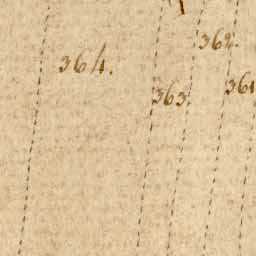 362.
364.
361
363.